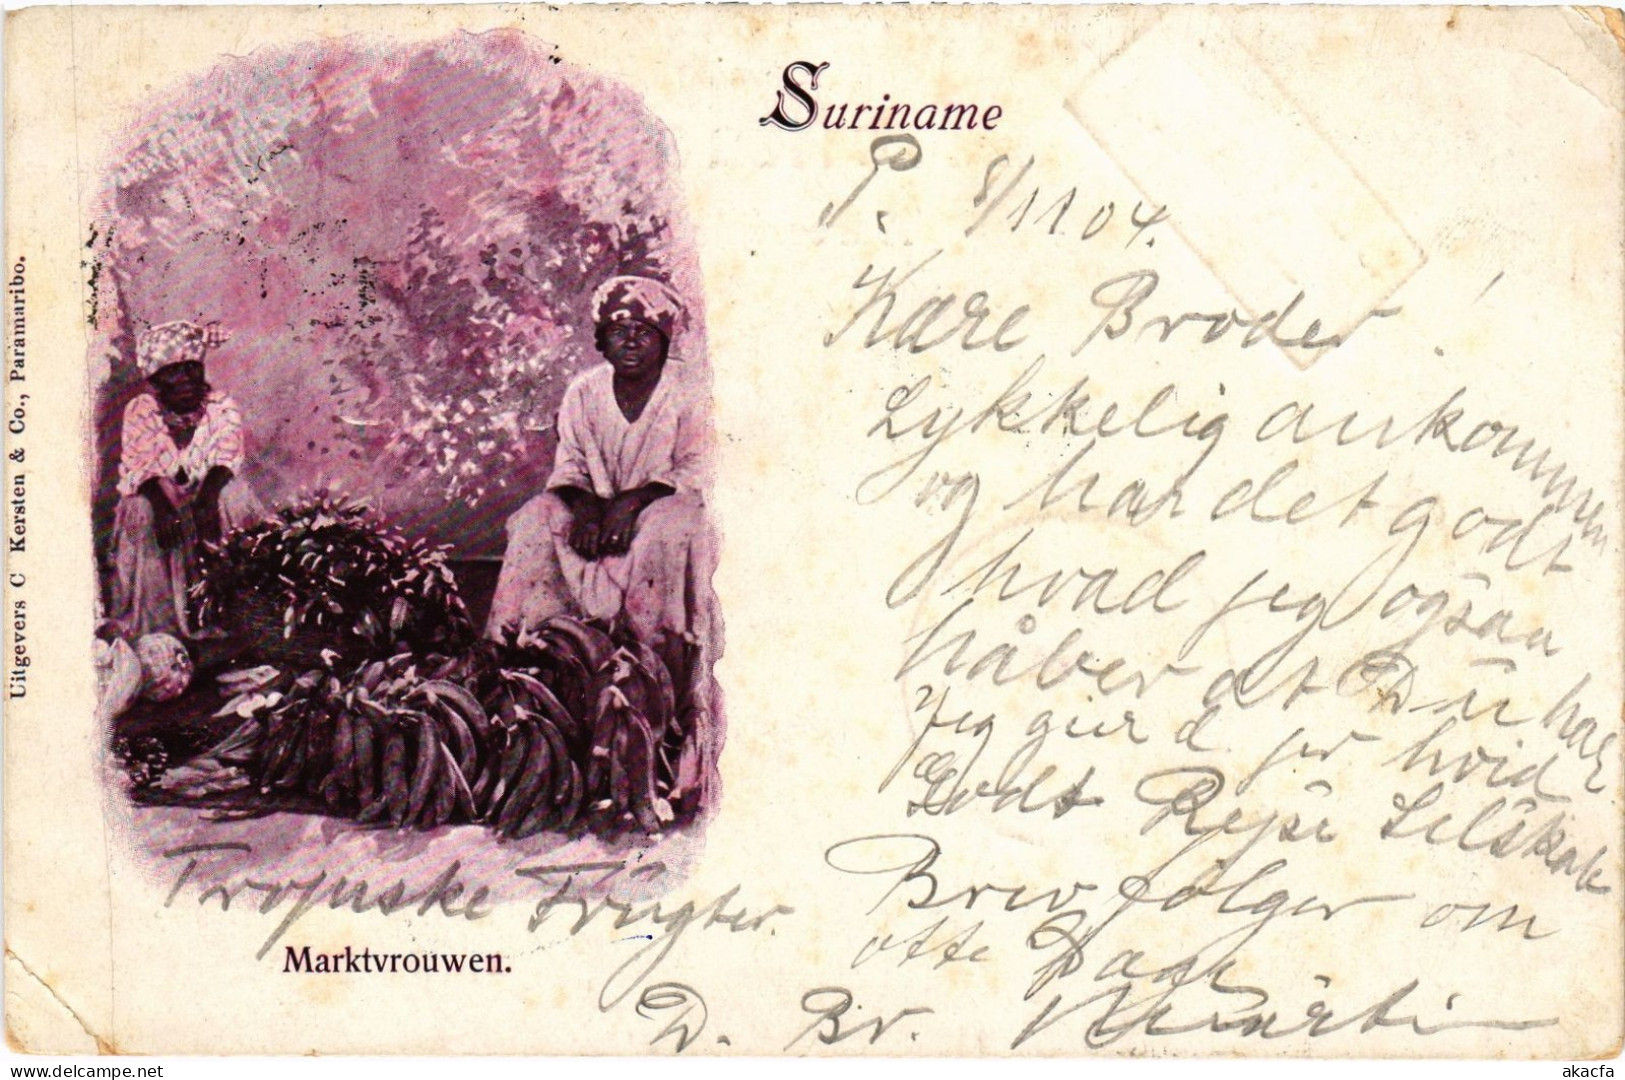 Suriname
P. 8/11 04.
Kære Broder!
Lykkelig ankommen
og har det godt
hvad jeg ogsaa
håber at Du har
Jeg
Godt Rejse Selskab
Brev følger om
otte Dage
D. Br. Martin
Tropiske Frugter.
Marktvrouwen.
Uitgevers C Kersten & Co., Paramaribo.
akacfa